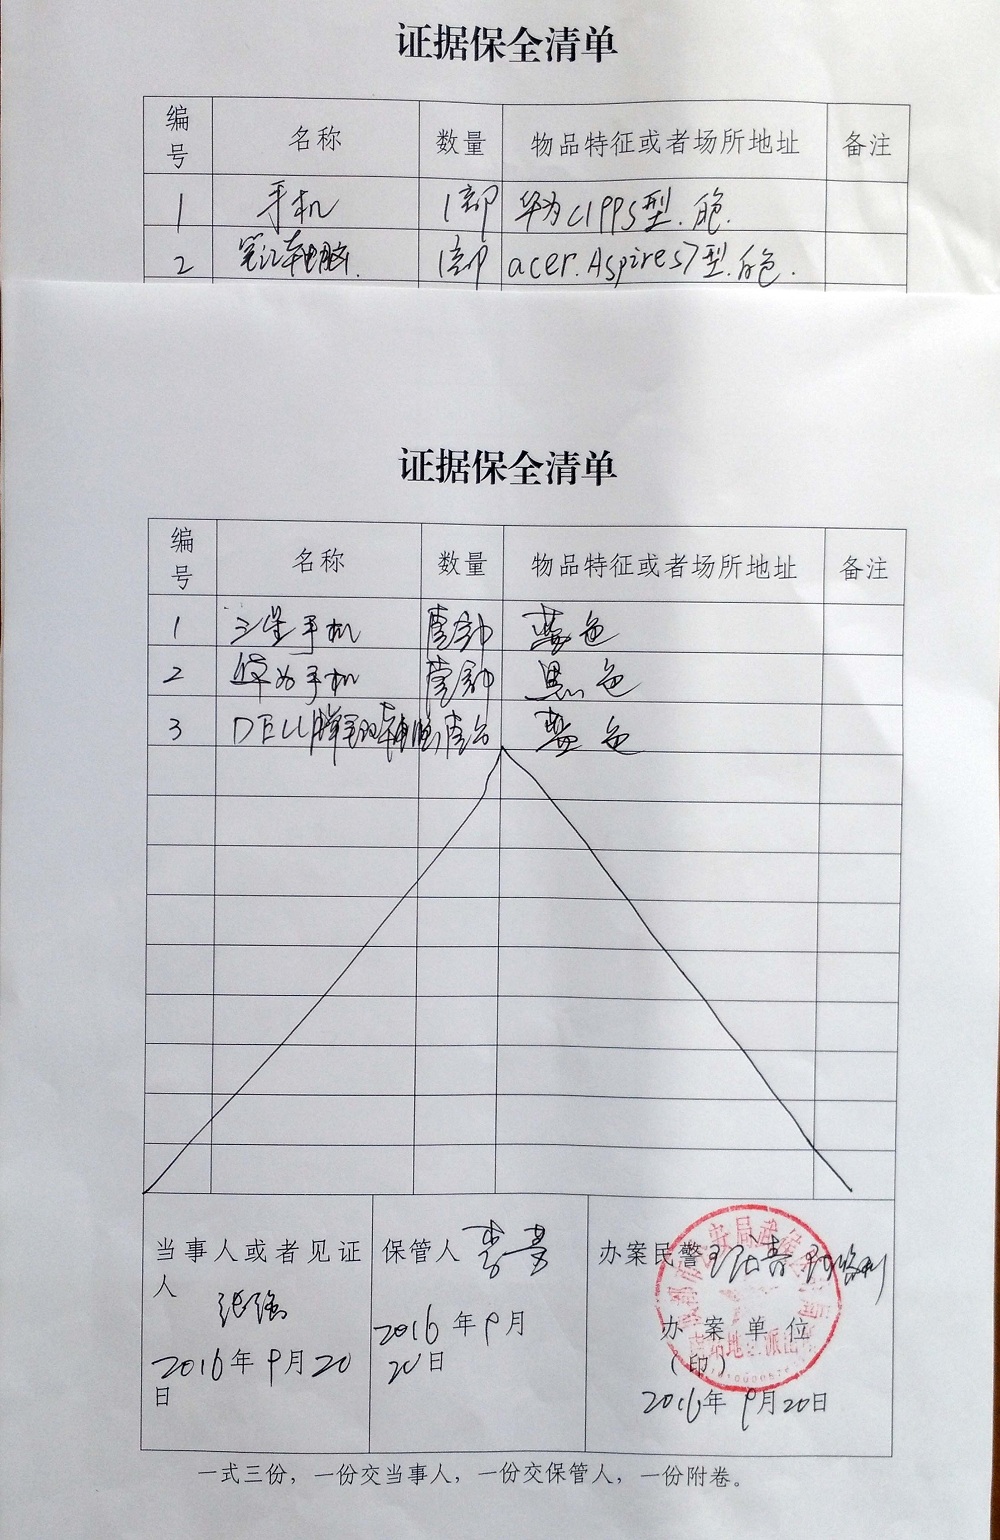 证据保全清单
编号 名称 数量 物品特征或者场所地址 备注
1 手机 1部 华为 型.
2 笔记本电脑. 1部 acer.Aspires7型.白色.
证据保全清单
编号 名称 数量 物品特征或者场所地址 备注
1 三星手机 壹部 蓝色
2 华为手机 壹部 黑色
3 DELL 电脑 壹台 蓝色
当事人或者见证 保管人 办案民警
人
张强
办案单位
(印)
2016年9月20日
2016年9月20日
2016年9月20日
一式三份，一份交当事人，一份交保管人，一份附卷。